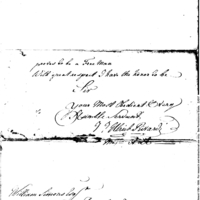 proves to be a Free Man
With great respect I have the honor to be
Sir
Your Most Obedient & Very
Humble Servant
William Simons Esqr